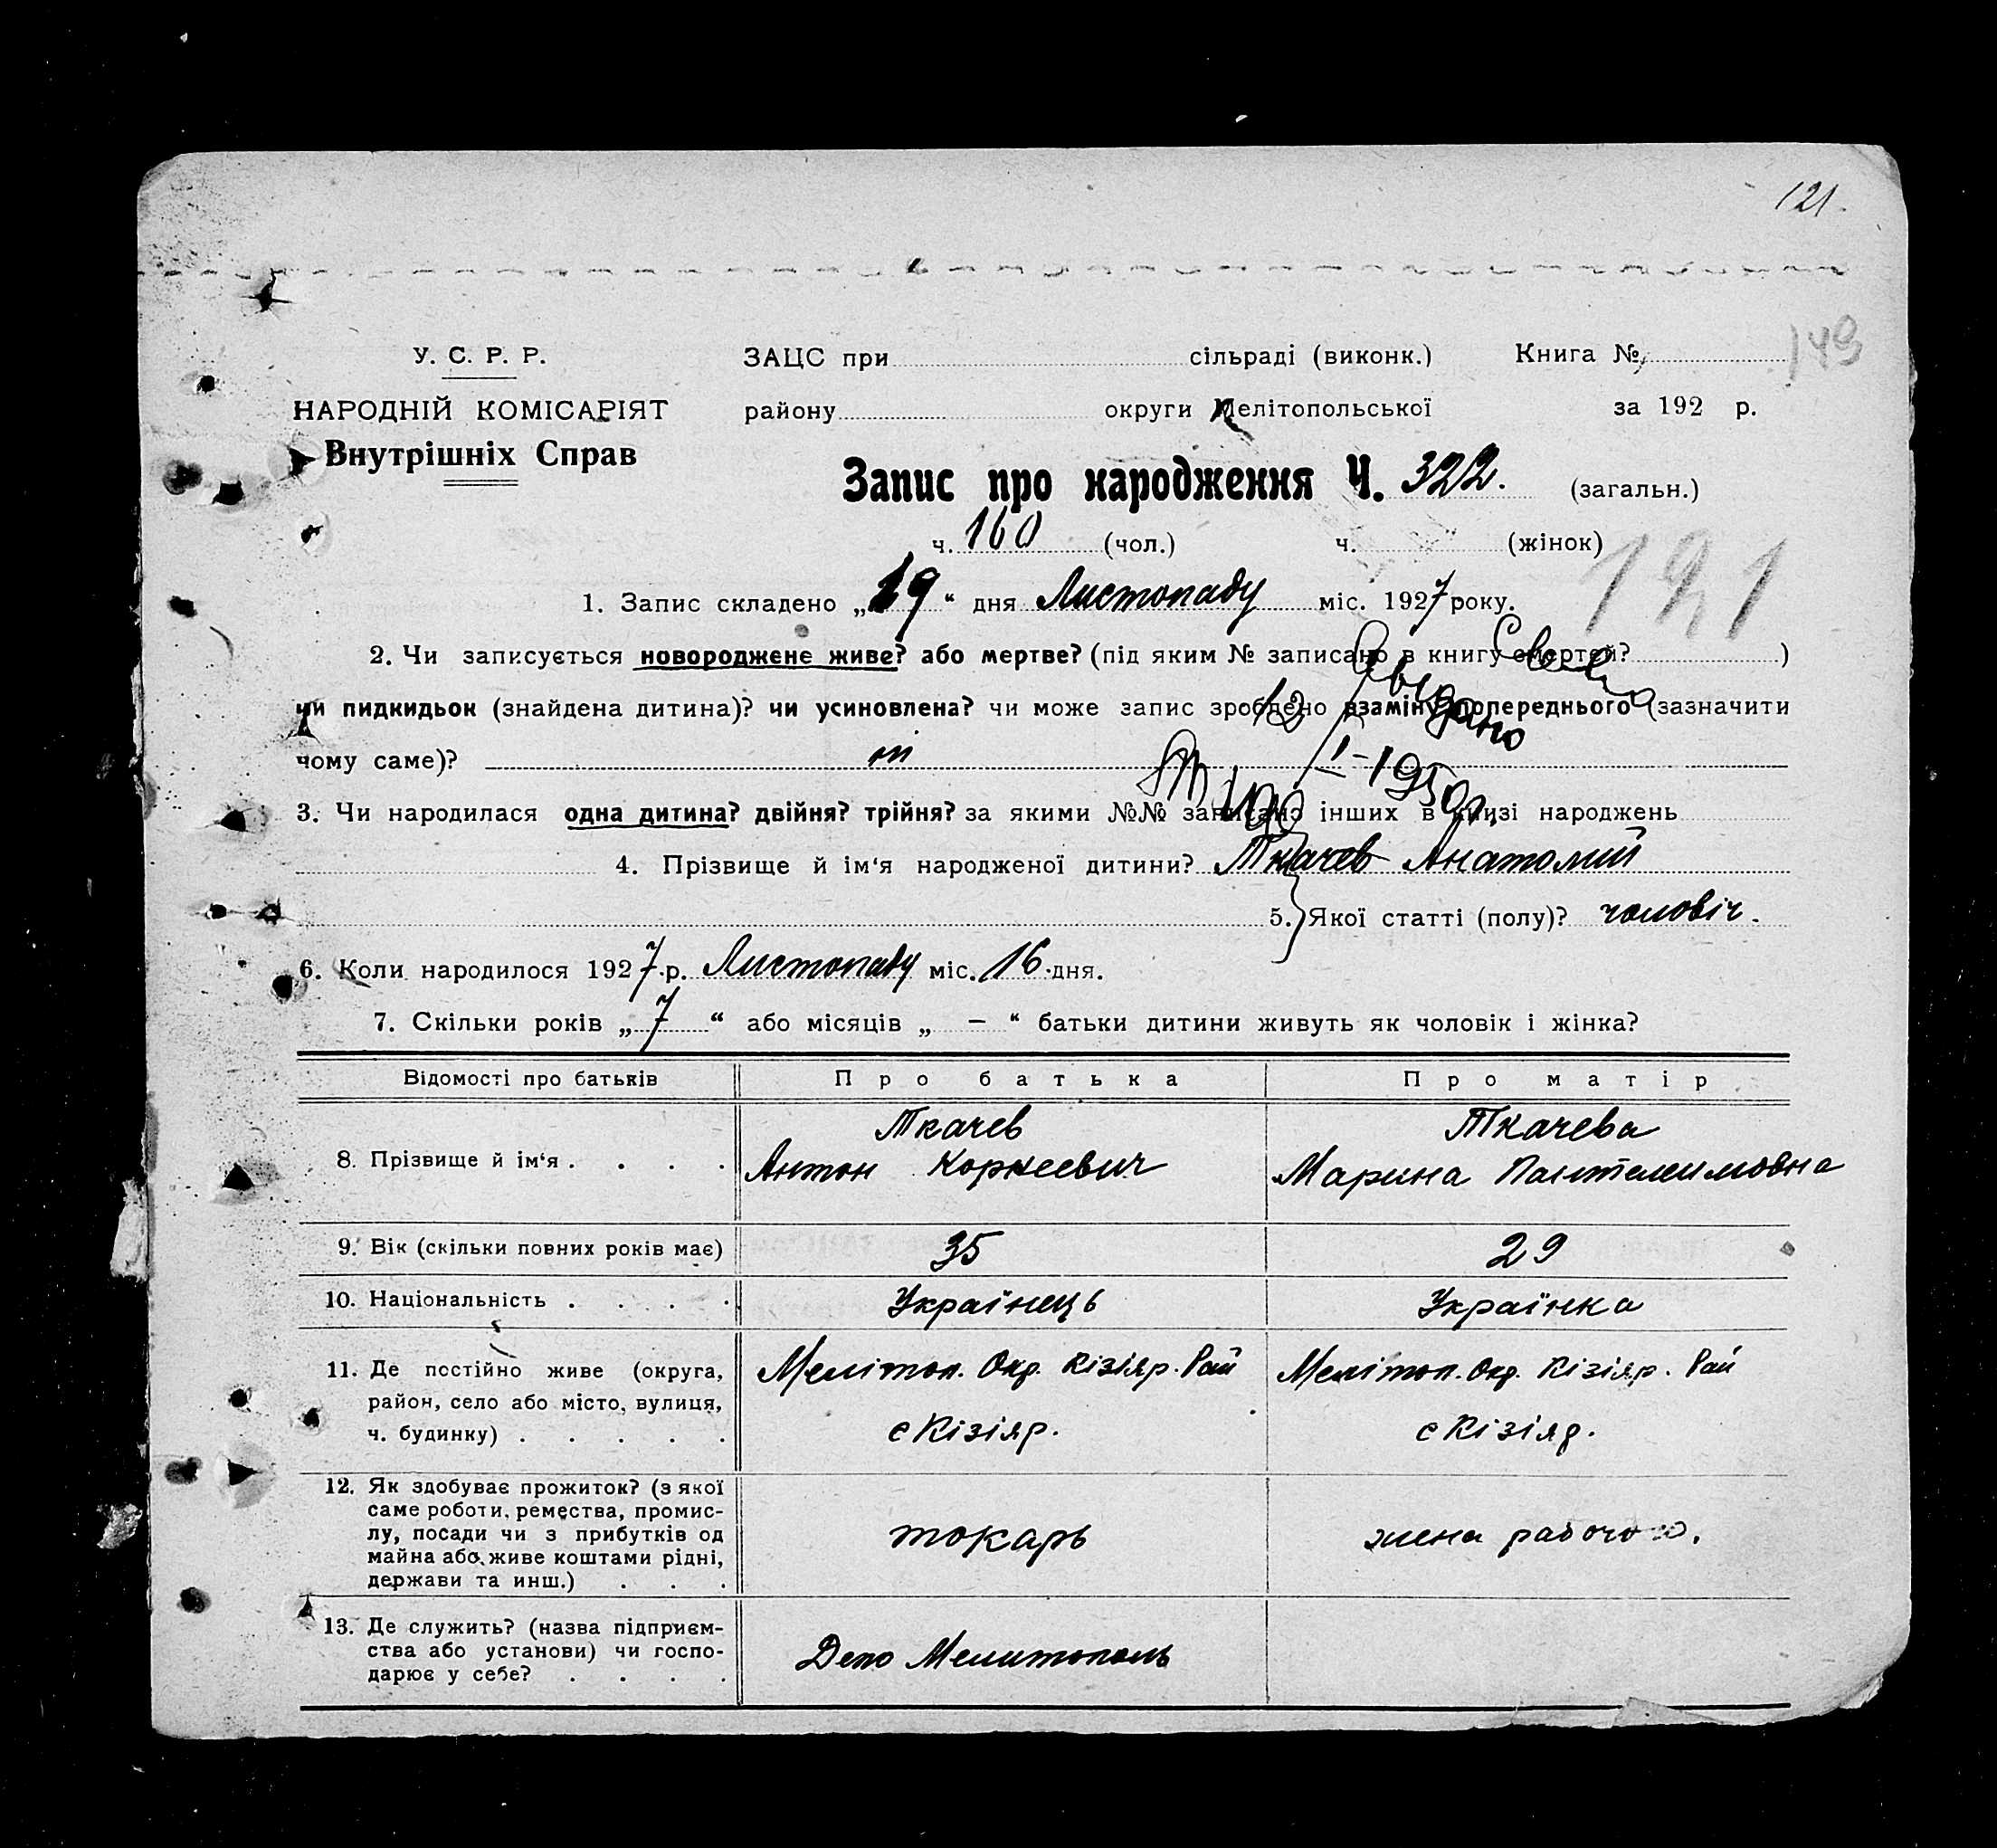 121.
У. С. Р. Р.
НАРОДНІЙ КОМІСАРІЯТ
Внутрішніх Справ
ЗАЦС при сільраді (виконк.) Книга №
149
району округи Мелітопольської за 192 р.
Запис про народження Ч. 322. (загальн.)
ч. 160 (чол.) ч. (жінок)
121
1. Запис складено „19“ дня Листопаду міс. 1927 року.
2. Чи записується новороджене живе? або мертве? (під яким № записано в книгу смертей? )
чи пидкидьок (знайдена дитина)? чи усиновлена? чи може запис зроблено взаміну попереднього (зазначити
чому саме)? ні
выдано
12/I-1950г.
3. Чи народилася одна дитина? двійня? трійня? за якими №№ записано інших в книзі народжень
4. Прізвище й ім‘я народженої дитини? Ткачев Анатолий
5. Якої статті (полу)? чоловіч.
6. Коли народилося 1927 р. Листопаду міс. 16 дня.
7. Скільки років „7“ або місяців „ – “ батьки дитини живуть як чоловік і жінка?
Відомості про батьків Про батька Про матір
8. Прізвище й ім‘я . . . . Ткачев Антон Корнеевич Ткачева Марина Пантелимовна
9. Вік (скільки повних років має) 35 29
10. Національність . . . . Українець Українка
11. Де постійно живе (округа, Меліточ. Окр. Кізіяр. Рай Меліточ. Окр. Кізіяр. Рай
район, село або місто, вулиця,
ч. будинку) . . . . . с Кізіяр. с Кізіяр.
12. Як здобуває прожиток? (з якої
саме роботи, ремества, промис-
лу, посади чи з прибутків од токарь жена рабочого.
майна або живе коштами рідні,
держави та инш.) . . .
13. Де служить? (назва підприєм-
ства або установи) чи госпо- Депо Мелитополь
дарює у себе? . . . .